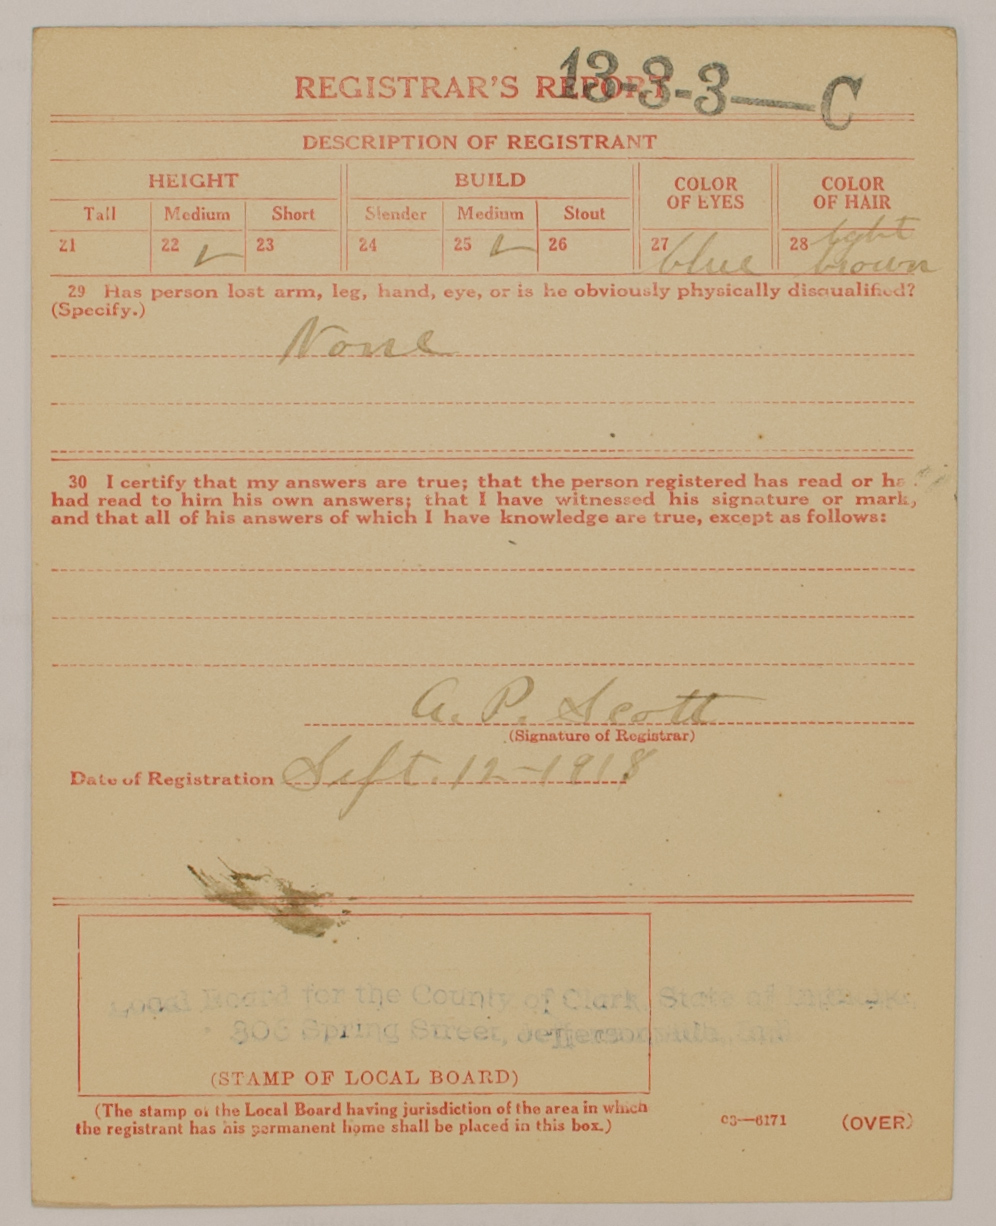 13-3-3—C
REGISTRAR'S REPORT
DESCRIPTION OF REGISTRANT
HEIGHT BUILD COLOR OF EYES COLOR OF HAIR
Tall Medium Short Slender Medium Stout
21 22 ✓ 23 24 25 ✓ 26 27 blue 28 light brown
29 Has person lost arm, leg, hand, eye, or is he obviously physically disqualified?
(Specify.)
None
30 I certify that my answers are true; that the person registered has read or has
had read to him his own answers; that I have witnessed his signature or mark,
and that all of his answers of which I have knowledge are true, except as follows:
A. P. Scott
(Signature of Registrar)
Date of Registration Sept. 12-1918
Local Board for the County of Clark, State of Indiana
306 Spring Street, Jeffersonville, Ind
(STAMP OF LOCAL BOARD)
(The stamp of the Local Board having jurisdiction of the area in which
the registrant has his permanent home shall be placed in this box.)
03—6171 (OVER)